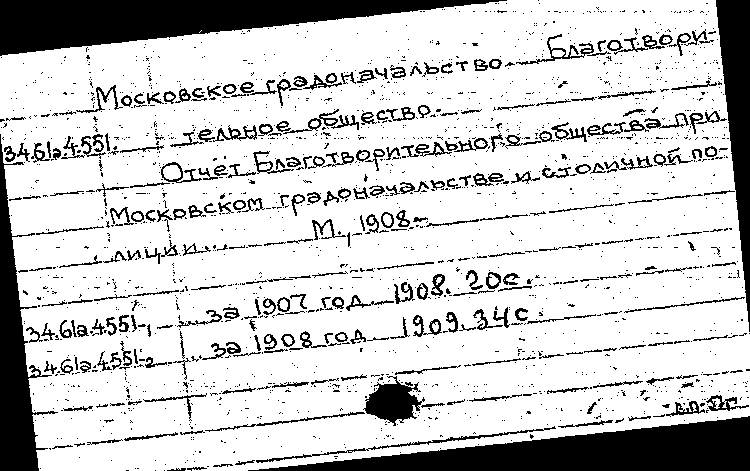 Московское градоначальство. Благотвори-
34.61а.4.551. тельное общество.
Отчет Благотворительного общества при
Московском градоначальстве и столичной по-
лиции... М., 1908-
34.61а.4551-1 ... за 1907 год. 1908. 20с.
34.61а.4551-2 ... за 1908 год 1909. 34с.